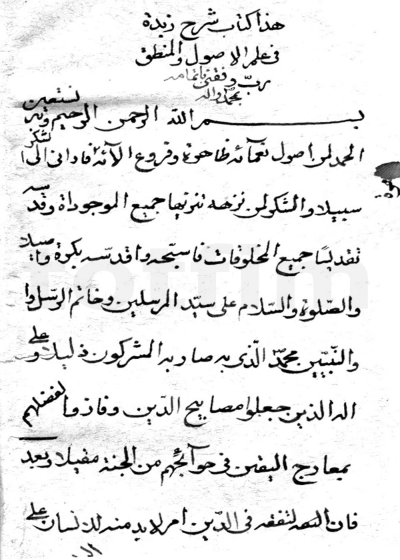 هذا كتاب شرح زبدة
في علم الاصول والمنطق
ربّ وفقني باتمامه
بمحمّد واله
بسم الله الرحمن الرحيم وبه نستعين
الحمد لمن اصول نعمآئه ظاهرة وفروع الآئه الى
سبيلا والشكر لمن نزهه تنزيها جميع الموجوداة وقدّسه
تقديسًا جميع المخلوقات فاسبحه واقدسه بكرة واصيلا
والصّلوة والسّلام على سيّد المرسلين وخاتم الرسل
والنّبيّين محمّد الّذي به صار به المشركون ذليلا وعلى
اله الذين جعلوا مصابيح الدّين وفازوا
بمعارج اليقين في حوآئجهم من الجنة مقيلا وبعد
فان التفقه في الدّين امر لابد منه للانسان على